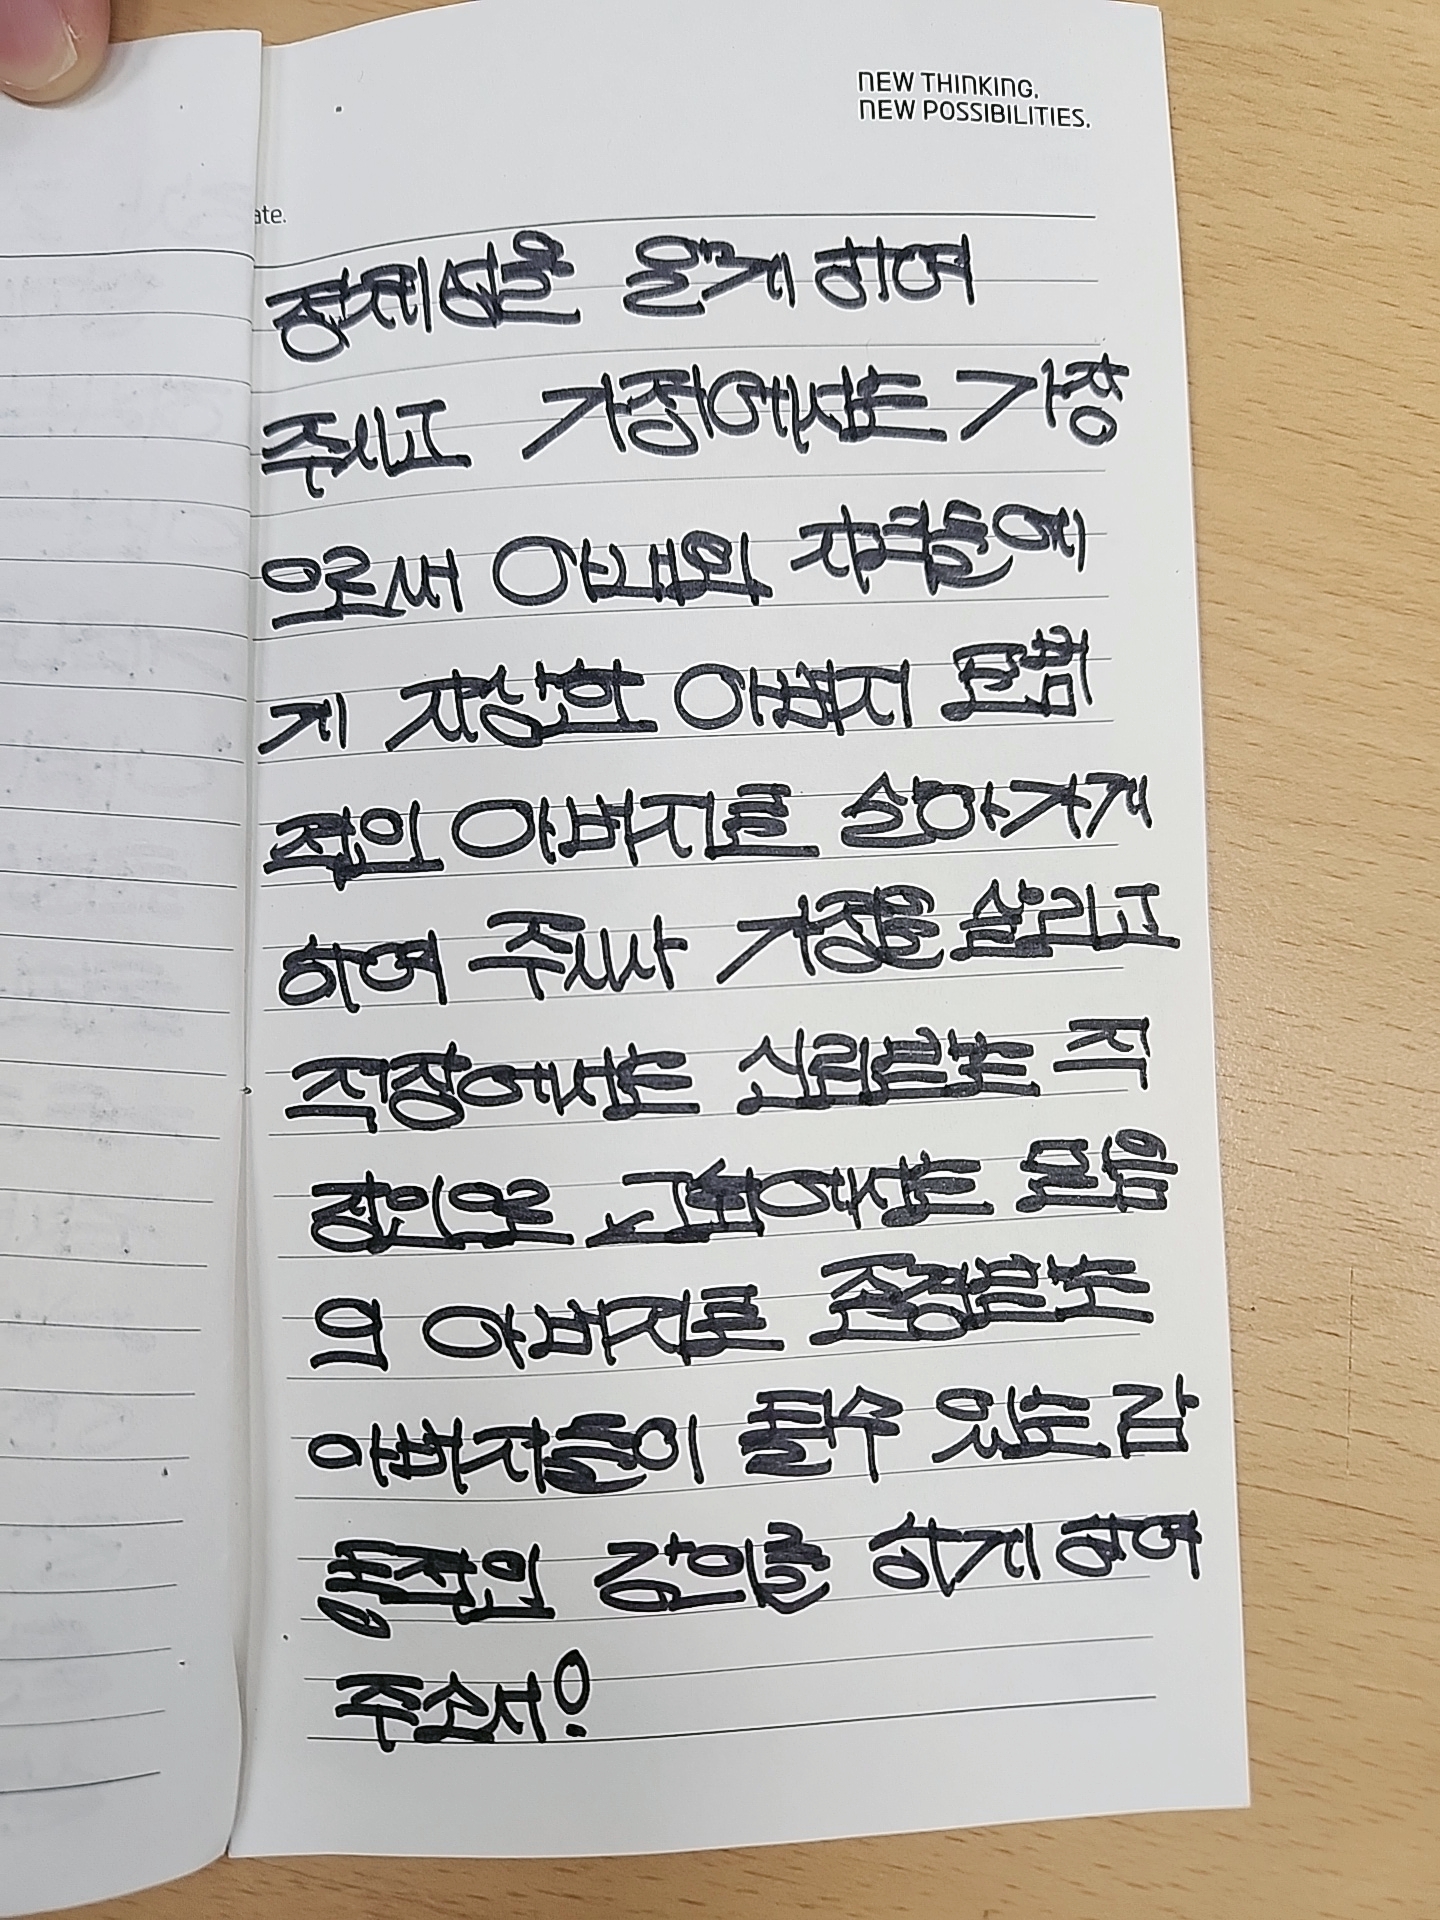 정체성을 알게 하여
주시고 가정에서는 가장
으로써 자녀들에
게 자상한 아버지
적인 아버지로 살아가게
하여 주시사 가정을 살리고
직장에서는 신뢰받는 직
장인으로 교회에서는 믿음
의 아버지로 존경받는
아버지들이 될수 있는 감
동적인 살게 하여
주소서!
NEW THINKING.
NEW POSSIBILITIES.
ate.